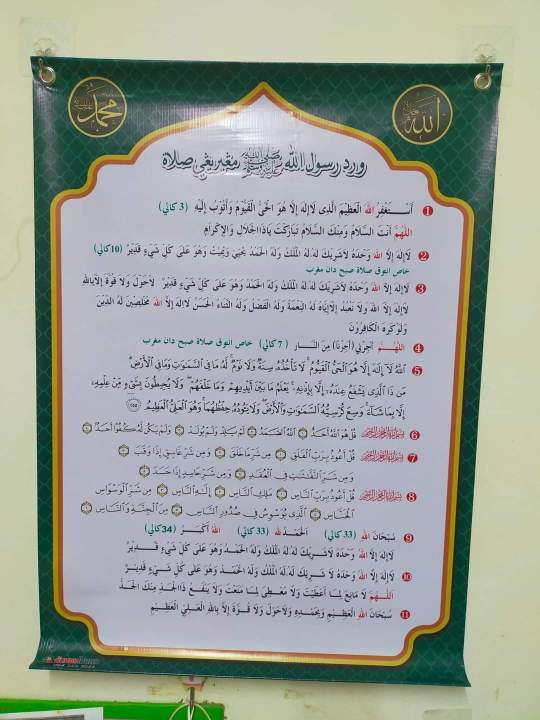 الله
محمد
ورد رسول الله ﷺ مغيريڠي صلاة
1 أَسْتَغْفِرُ اللهَ الْعَظِيمَ الَّذِى لَا إِلهَ إِلَّا هُوَ الْحَيُّ الْقَيُّومُ وَأَتُوْبُ إِلَيْهِ (3 كالي)
اللَّهُمَّ أَنْتَ السَّلَامُ وَمِنْكَ السَّلَامُ تَبَارَكْتَ يَاذَا الْجَلَالِ وَالْإِكْرَامِ
2 لَا إِلهَ إِلَّا اللهُ وَحْدَهُ لَا شَرِيْكَ لَهُ لَهُ الْمُلْكُ وَلَهُ الْحَمْدُ يُحْيِيْ وَيُمِيْتُ وَهُوَ عَلَى كُلِّ شَيْءٍ قَدِيْرٌ (10كالي)
خاص انتوق صلاة صبح دان مغرب
3 لَا إِلهَ إِلَّا اللهُ وَحْدَهُ لَا شَرِيْكَ لَهُ لَهُ الْمُلْكُ وَلَهُ الْحَمْدُ وَهُوَ عَلَى كُلِّ شَيْءٍ قَدِيْرٌ لَا حَوْلَ وَلَا قُوَّةَ إِلَّا بِاللهِ
لَا إِلهَ إِلَّا اللهُ وَلَا نَعْبُدُ إِلَّا إِيَّاهُ لَهُ النِّعْمَةُ وَلَهُ الْفَضْلُ وَلَهُ الثَّنَاءُ الْحَسَنُ لَا إِلهَ إِلَّا اللهُ مُخْلِصِيْنَ لَهُ الدِّيْنَ
وَلَوْ كَرِهَ الْكَافِرُوْنَ
4 اللَّهُمَّ أَجِرْنِي (أَجِرْنَا) مِنَ النَّارِ (7 كالي) خاص انتوق صلاة صبح دان مغرب
5 اللَّهُ لَا إِلَهَ إِلَّا هُوَ الْحَيُّ الْقَيُّومُ لَا تَأْخُذُهُ سِنَةٌ وَلَا نَوْمٌ لَهُ مَا فِي السَّمَوَتِ وَمَا فِي الْأَرْضِ
مَنْ ذَا الَّذِي يَشْفَعُ عِنْدَهُ إِلَّا بِإِذْنِهِ يَعْلَمُ مَا بَيْنَ أَيْدِيهِمْ وَمَا خَلْفَهُمْ وَلَا يُحِيطُونَ بِشَيْءٍ مِنْ عِلْمِهِ
إِلَّا بِمَا شَاءَ وَسِعَ كُرْسِيُّهُ السَّمَوَتِ وَالْأَرْضَ وَلَا يَئُودُهُ حِفْظُهُمَا وَهُوَ الْعَلِيُّ الْعَظِيمُ ٢٥٥
6 بِسْمِ اللهِ الرَّحْمٰنِ الرَّحِيْمِ قُلْ هُوَ اللَّهُ أَحَدٌ ١ اللَّهُ الصَّمَدُ ٢ لَمْ يَلِدْ وَلَمْ يُولَدْ ٣ وَلَمْ يَكُنْ لَهُ كُفُوًا أَحَدٌ ٤
7 بِسْمِ اللهِ الرَّحْمٰنِ الرَّحِيْمِ قُلْ أَعُوذُ بِرَبِّ الْفَلَقِ ١ مِنْ شَرِّ مَا خَلَقَ ٢ وَمِنْ شَرِّ غَاسِقٍ إِذَا وَقَبَ ٣
وَمِنْ شَرِّ النَّفَّثَتِ فِي الْعُقَدِ ٤ وَمِنْ شَرِّ حَاسِدٍ إِذَا حَسَدَ ٥
8 بِسْمِ اللهِ الرَّحْمٰنِ الرَّحِيْمِ قُلْ أَعُوذُ بِرَبِّ النَّاسِ ١ مَلِكِ النَّاسِ ٢ إِلَهِ النَّاسِ ٣ مِنْ شَرِّ الْوَسْوَاسِ
الْخَنَّاسِ ٤ الَّذِي يُوَسْوِسُ فِي صُدُورِ النَّاسِ ٥ مِنَ الْجِنَّةِ وَالنَّاسِ ٦
9 سُبْحَانَ اللهِ (33 كالي) الْحَمْدُ لِلهِ (33 كالي) اللهُ أَكْبَرُ (34كالي)
لَا إِلهَ إِلَّا اللهُ وَحْدَهُ لَا شَرِيْكَ لَهُ لَهُ الْمُلْكُ وَلَهُ الْحَمْدُ وَهُوَ عَلَى كُلِّ شَيْءٍ قَدِيْرٌ
10 لَا إِلهَ إِلَّا اللهُ وَحْدَهُ لَا شَرِيْكَ لَهُ لَهُ الْمُلْكُ وَلَهُ الْحَمْدُ وَهُوَ عَلَى كُلِّ شَيْءٍ قَدِيْرٌ
اللَّهُمَّ لَا مَانِعَ لِمَا أَعْطَيْتَ وَلَا مُعْطِيَ لِمَا مَنَعْتَ وَلَا يَنْفَعُ ذَا الْجَدِّ مِنْكَ الْجَدُّ
11 سُبْحَانَ اللهِ الْعَظِيْمِ وَبِحَمْدِهِ وَلَا حَوْلَ وَلَا قُوَّةَ إِلَّا بِاللهِ الْعَلِيِّ الْعَظِيْمِ